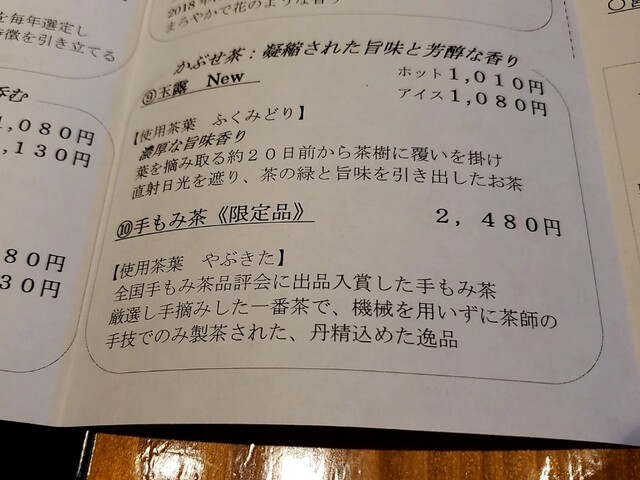 を毎年選定し
徴を引き立てる
呑む
1,080円
,130円
80円
30円
2018年
まろやかで花のような香り
かぶせ茶：凝縮された旨味と芳醇な香り
⑨玉露 New ホット1,010円
アイス1,080円
【使用茶葉 ふくみどり】
濃厚な旨味香り
葉を摘み取る約20日前から茶樹に覆いを掛け
直射日光を遮り、茶の緑と旨味を引き出したお茶
⑩手もみ茶《限定品》 2,480円
【使用茶葉 やぶきた】
全国手もみ茶品評会に出品入賞した手もみ茶
厳選し手摘みした一番茶で、機械を用いずに茶師の
手技でのみ製茶された、丹精込めた逸品